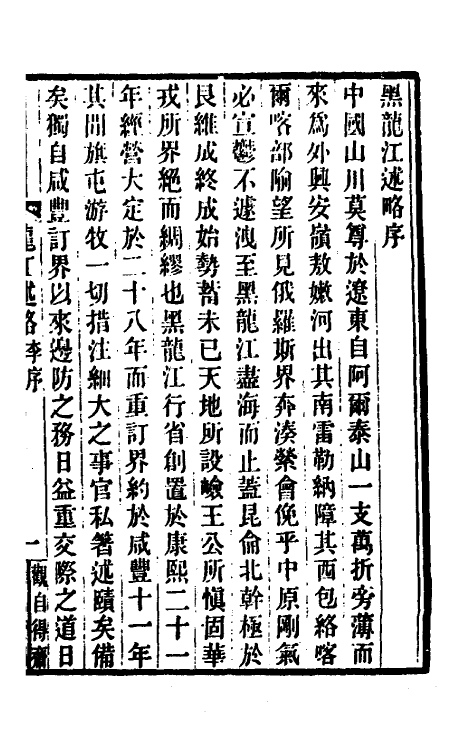 黑龍江述略序
中國山川莫尊於遼東自阿爾泰山一支萬折旁薄而
來爲外興安嶺敖嫩河出其南雷勒納障其西包絡喀
爾喀部喻望所見俄羅斯界奔湊縈會俛乎中原剛氣
必宣鬱不遽洩至黑龍江盡海而止蓋昆侖北幹極於
艮維成終成始勢蓄未已天地所設嶮王公所愼固華
戎所界絕而綢繆也黑龍江行省創置於康熙二十一
年經營大定於二十八年而重訂界約於咸豐十一年
其間旗屯游牧一切措注細大之事官私著述賾矣備
矣獨自咸豐訂界以來邊防之務日益重交際之道日
龍江述略 李序 一 觀自得齋